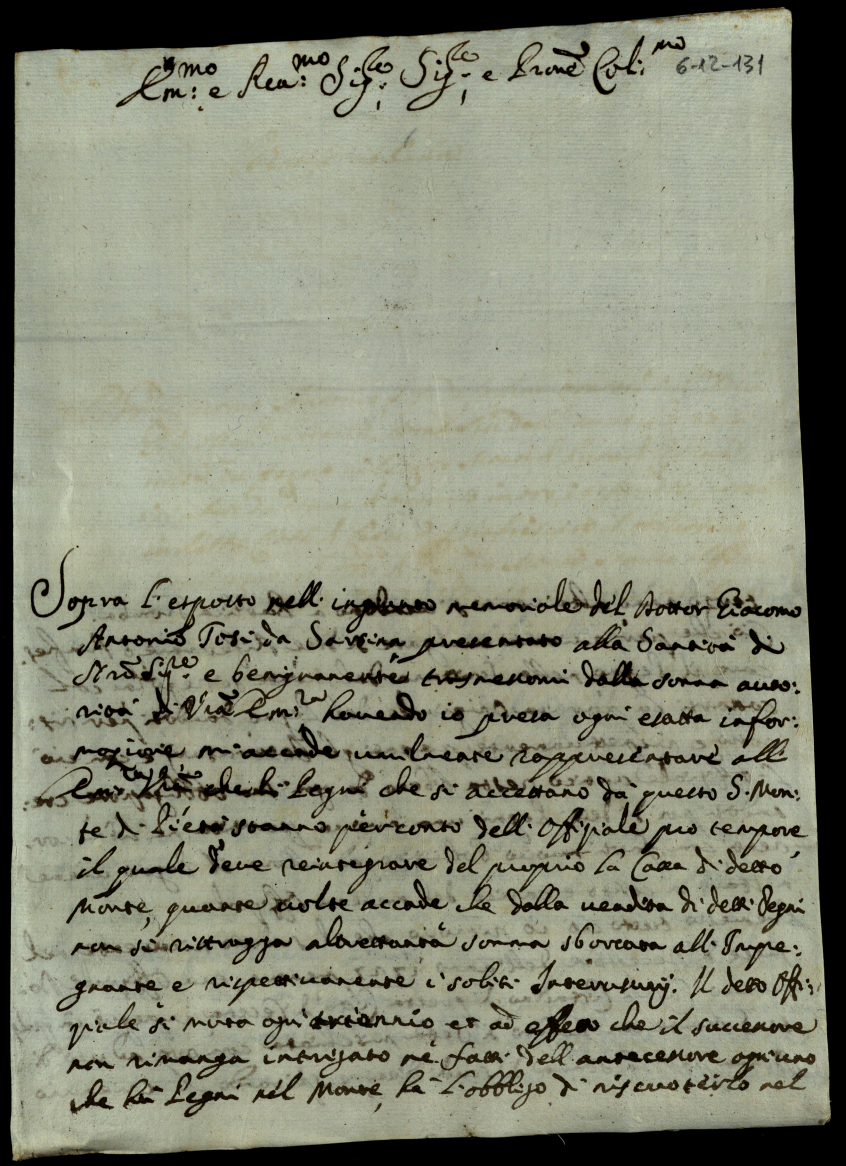 Em:mo e Rea:mo Sig:re Sig:re e Pronē Col:mo 6-12-131
Sopra l'esposto nell' ingiunto memoriale del Dottor Giacomo
Antonio Tosi da Sarsina presentato alla Santità di
Nrō Sig:re e benignamente trasmessomi dalla somma auto:
rità di Vrā Em:za havendo io presa ogni esatta infor:
mazione m'accade umilmente rappresentare all'
che li Pegni che si accettano da questo S. Mon:
te di Pietà stanno per conto dell' Offiziale pro tempore
il quale deve reintegrare del proprio la Cassa di detto
Monte, quante volte accade che dalla vendita di detti Pegni
non si rittragga altrettanta somma sborsata all' Impe:
gnante e rispettivamente i soliti Interusurij. Il detto Offi:
ziale si muta ogni triennio et ad effetto che il successore
non rimanga intrigato ne fatti dell' antecessore ogn'uno
che hà Pegni nel Monte, hà l'obbligo di riscuoterlo nel